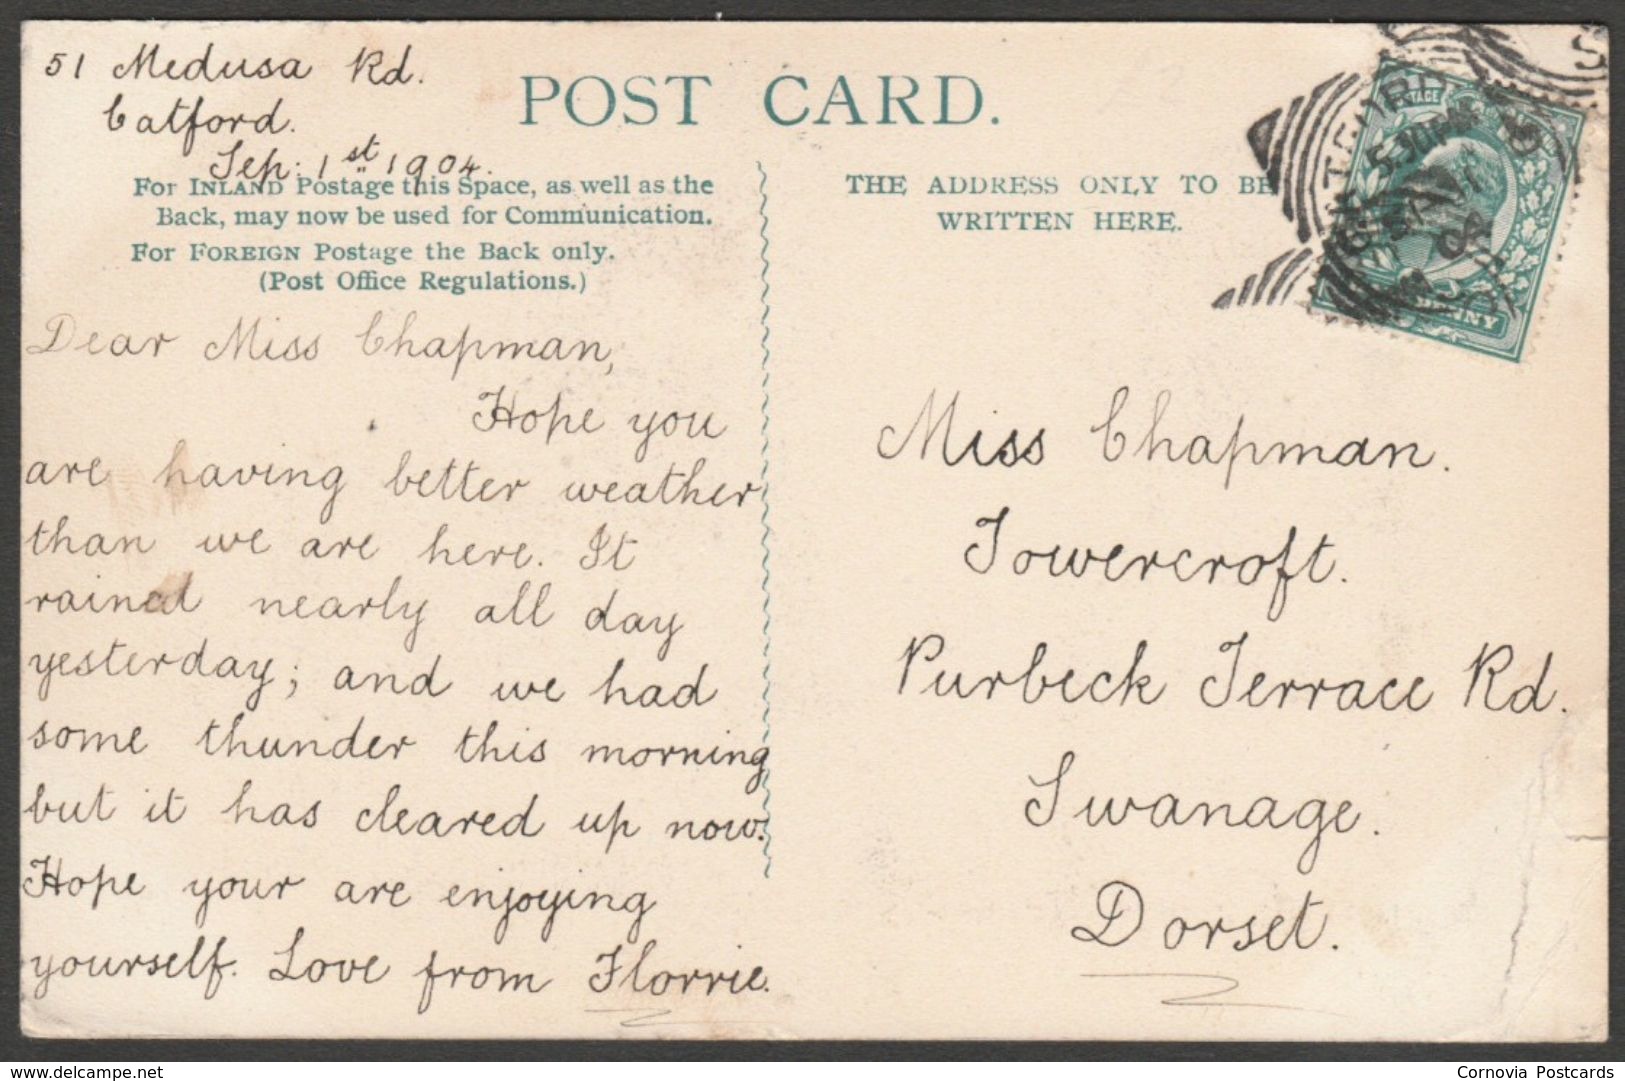 51 Medusa Rd.
Catford.
Sep: 1st 1904.
POST CARD.
For INLAND Postage this Space, as well as the
Back, may now be used for Communication.
For FOREIGN Postage the Back only.
(Post Office Regulations.)
THE ADDRESS ONLY TO BE
WRITTEN HERE.
Dear Miss Chapman,
Hope you
are having better weather
than we are here. It
rained nearly all day
yesterday; and we had
some thunder this morning
but it has cleared up now.
Hope your are enjoying
yourself. Love from Florrie.
Miss Chapman.
Towercroft.
Purbeck Terrace Rd.
Swanage.
Dorset.
delcampe.net
Cornovia Postcards